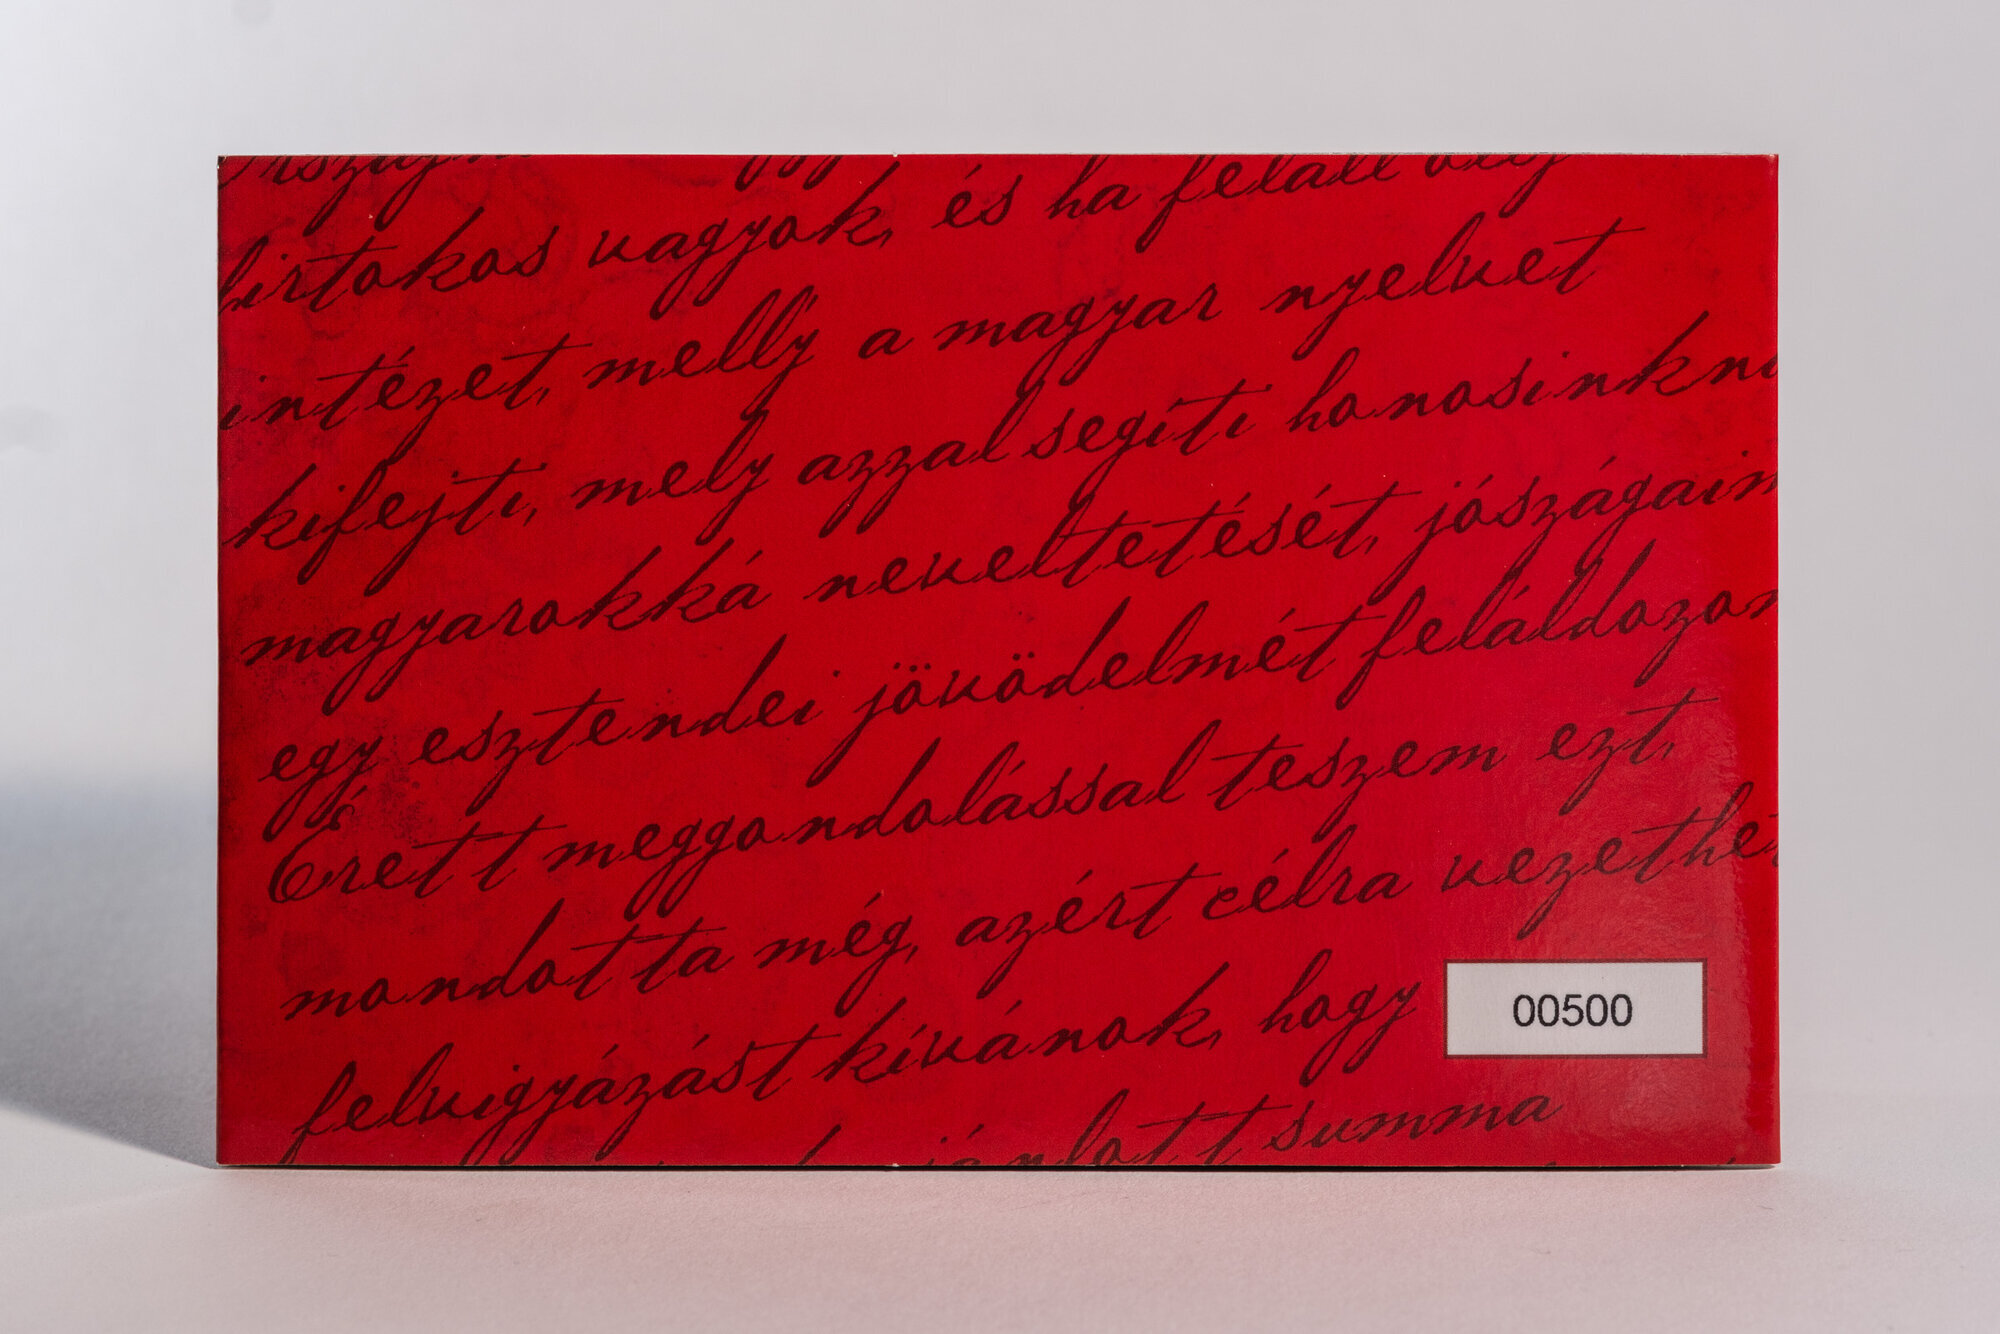 birtokos vagyok, és ha feláll oly
intézet, melly a magyar nyelvet
kifejti, mely azzal segíti honosinkna
magyarokká neveltetését, jószágaim
egy esztendei jövödelmét feláldozom
Érett meggondolással teszem ezt,
mondotta még, azért célra vezethet
felvigyázást kívánok, hogy
00500
summa